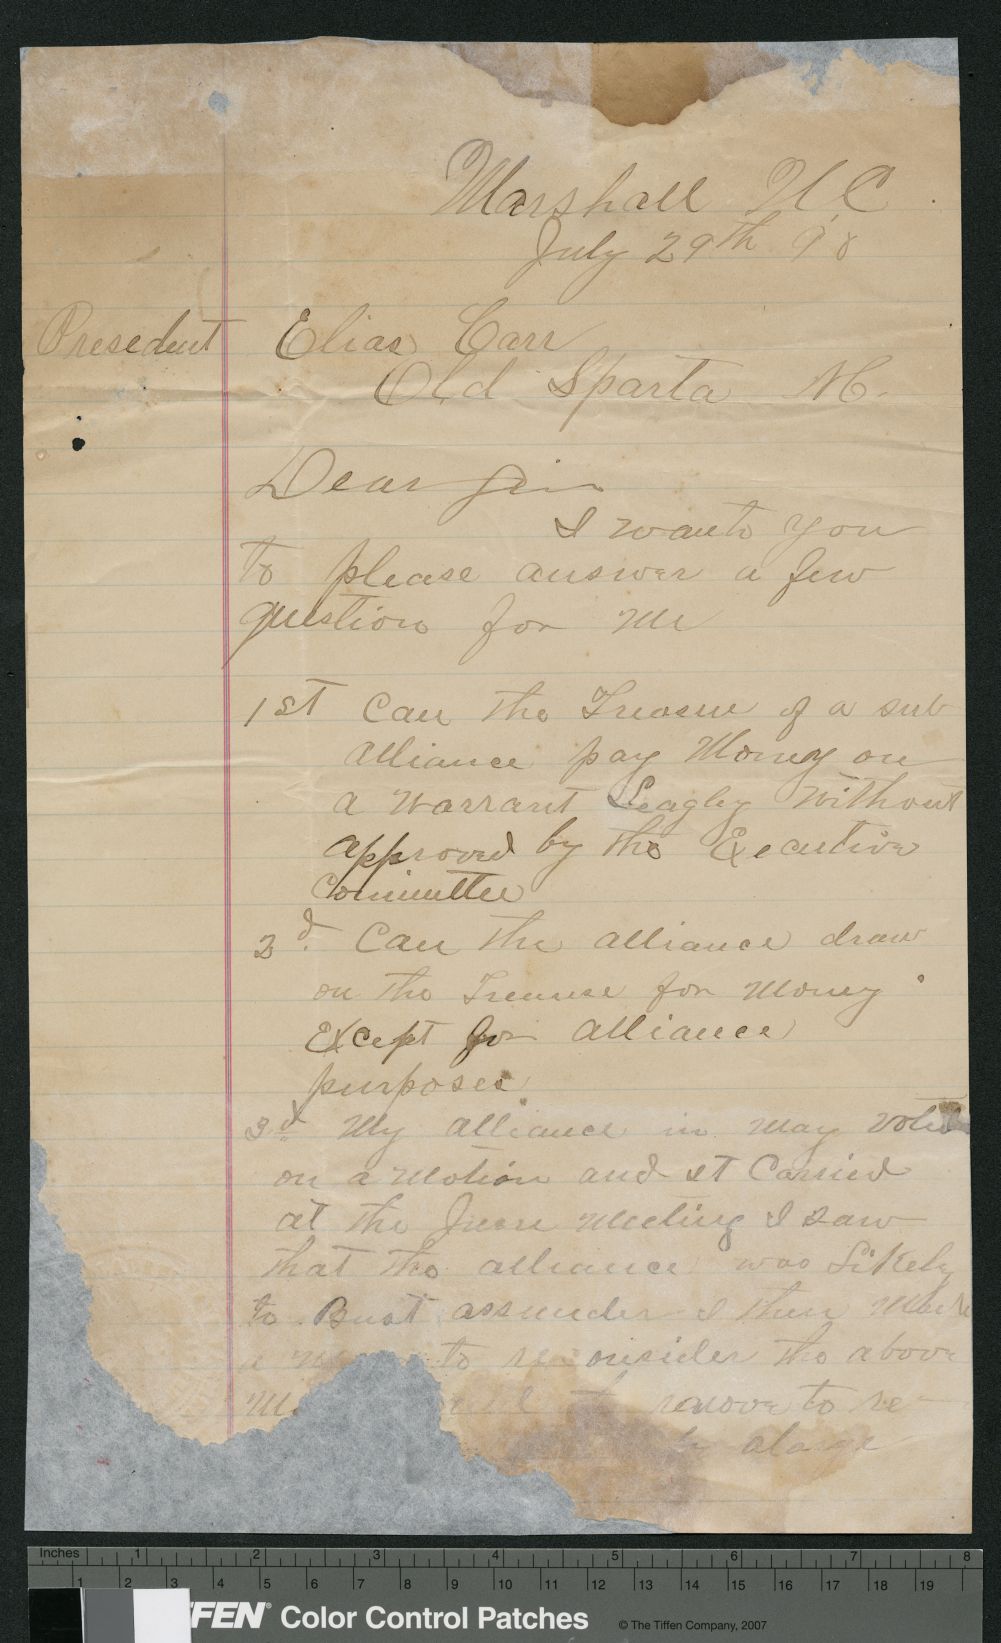 Marshall N.C.
July 29th 90
Presedent Elias Carr
Old Sparta NC.
Dear Sir
I wants you
to please answer a few
question for Me
1st Can the Treasue of a sub
alliance pay Money on
a Warrant Leagley Without
approved by the Execative
Committee
2d. Can the alliance draw
on the Treasuse for Money
Except for alliance
purposes
3d My alliance in May voted
on a Motion and it Carried
at the June Meeting I saw
that the alliance was Likely
to Bust assunder I then Made
to reconsider the above
move to re-
a large
Inches 1 2 3 4 5 6 7 8
1 2 3 4 5 6 7 8 9 10 11 12 13 14 15 16 17 18 19
FFEN® Color Control Patches © The Tiffen Company, 2007